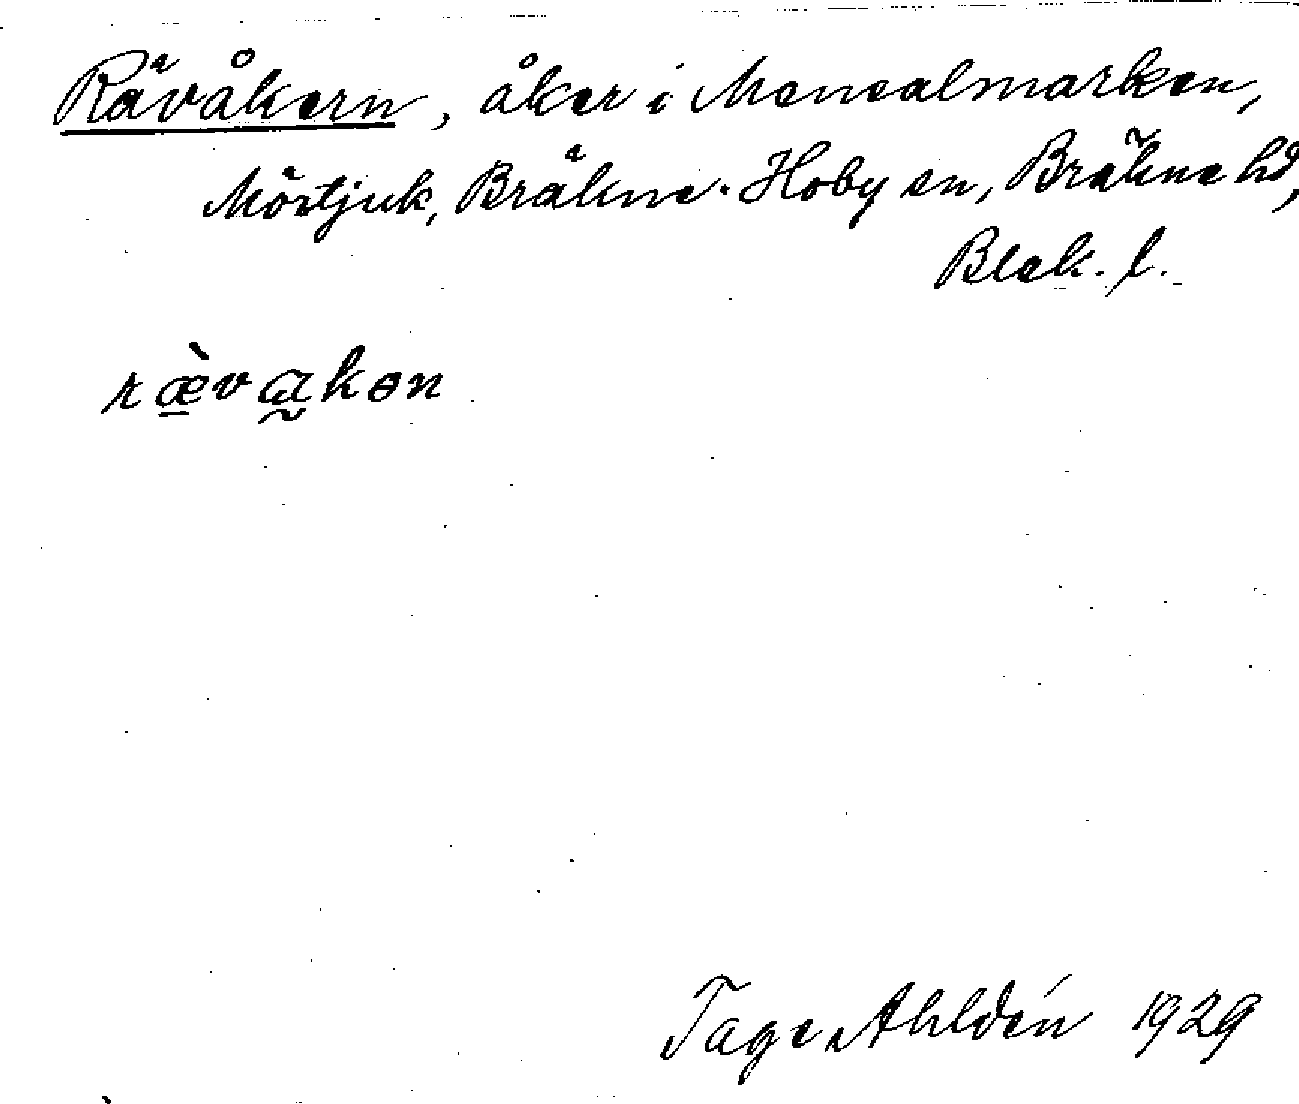 Rävåkern, åker i Menealmarken,
Mörtjuk, Bräkne-Hoby sn, Bräkne hd,
Blek. l.
ræ̀vakən
Tage Ahldén 1929